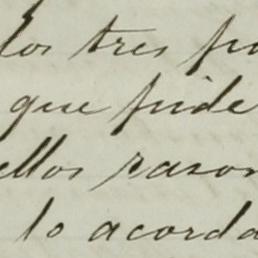 los tres po
que pide
ellos rason
lo acorda